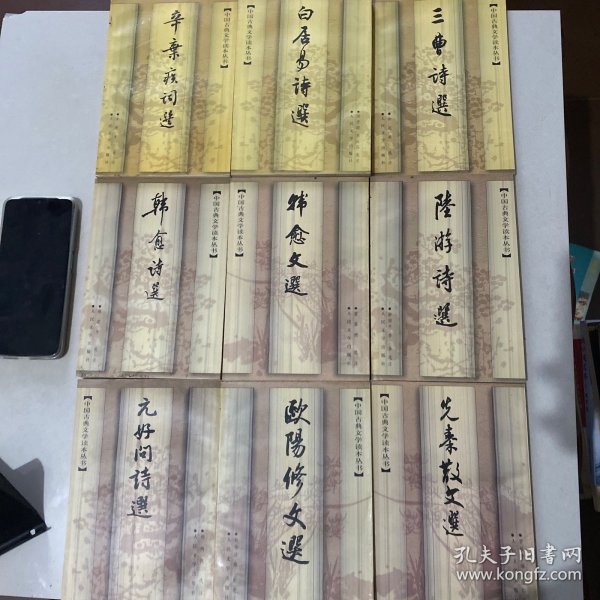 辛棄疾词選
【中国古典文学读本丛书】
【中国古典文学读本丛书】
白居易诗選
三曹诗選
【中国古典文学读本丛书】
韩愈诗選
【中国古典文学读本丛书】
【中国古典文学读本丛书】
韩愈文選
陸游诗選
【中国古典文学读本丛书】
【中国古典文学读本丛书】
元好问詩選
欧陽修文選
【中国古典文学读本丛书】
【中国古典文学读本丛书】
先秦散文選
孔夫子旧书网
www.kongfz.com